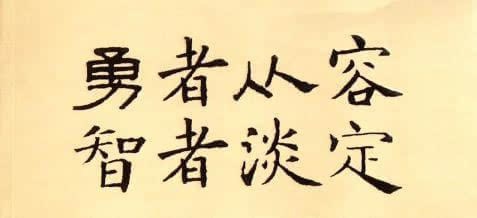 勇者从容
智者淡定